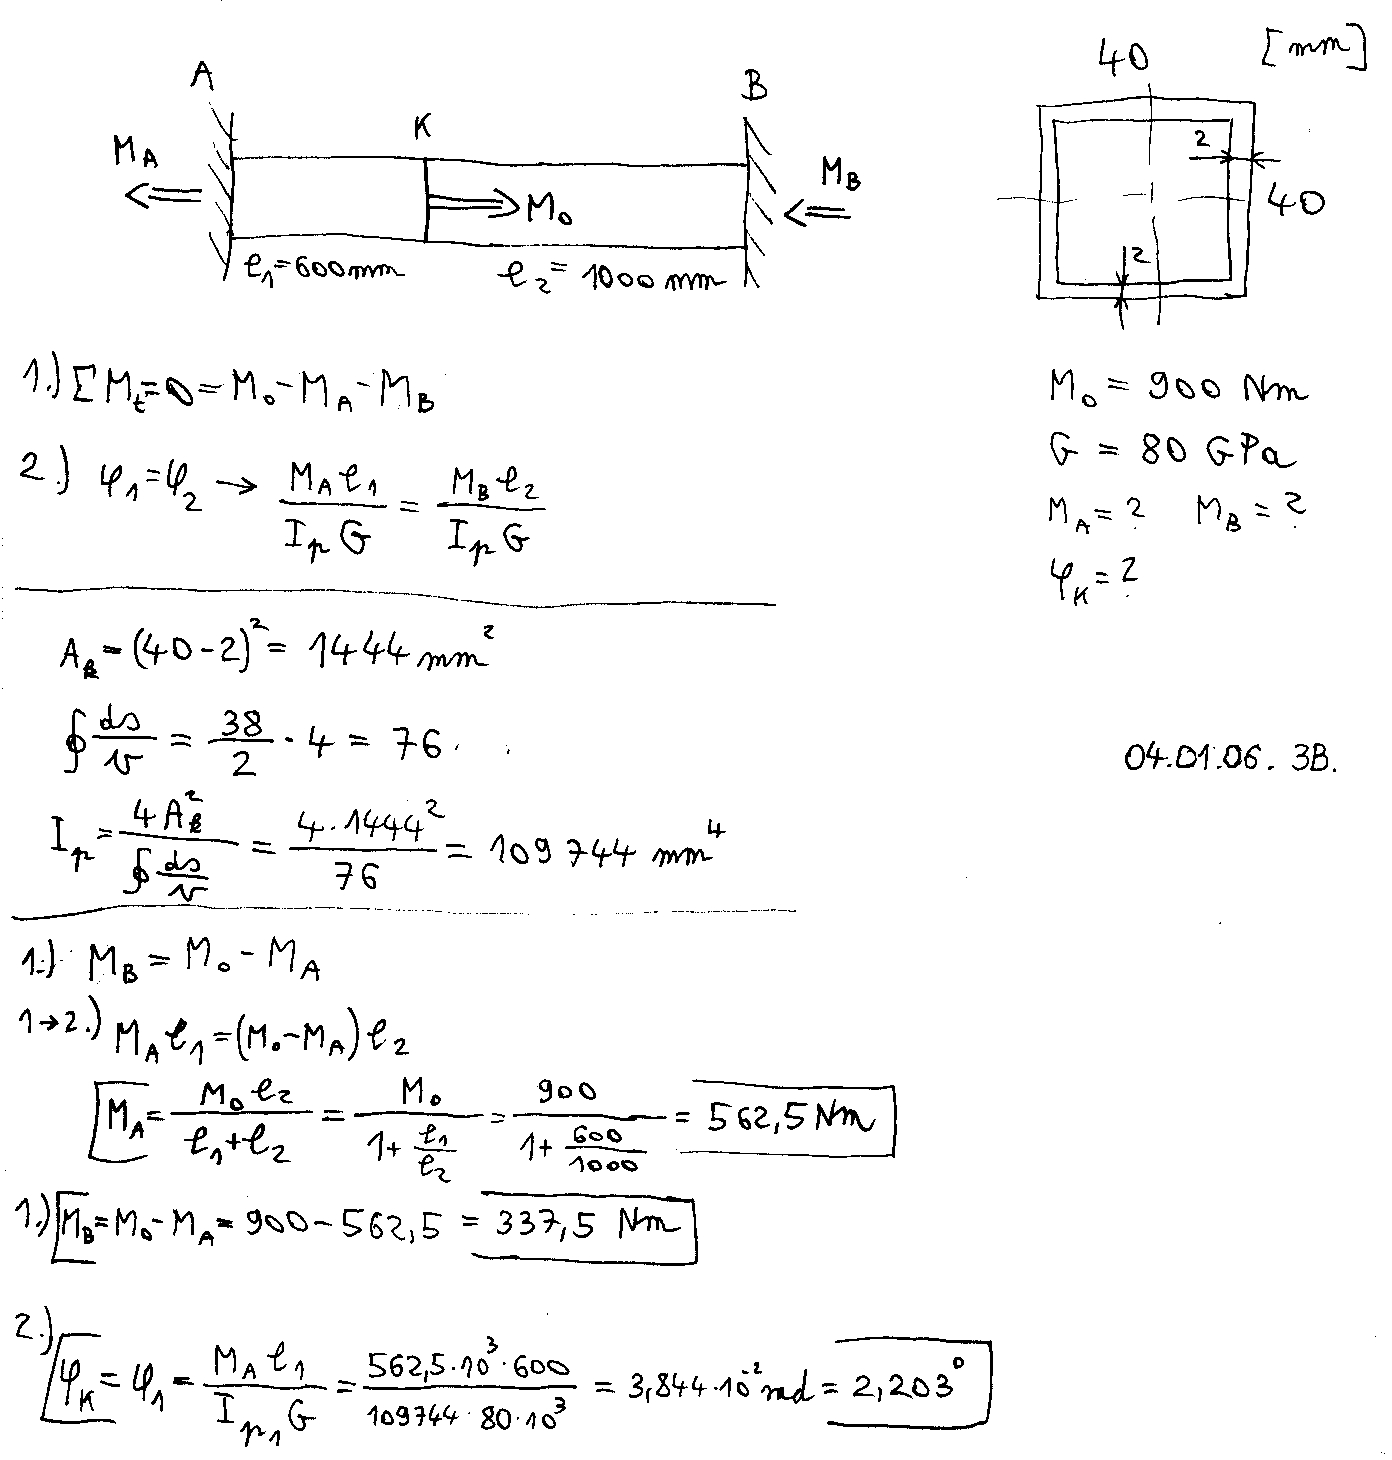 A
K
B
M_A
M_0
M_B
l_1=600mm
l_2=1000 mm
40 [mm]
2
40
2
1.) ΣM_t=0=M_0-M_A-M_B
2.) φ_1=φ_2 → M_A l_1 / I_p G = M_B l_2 / I_p G
M_0 = 900 Nm
G = 80 GPa
M_A = ? M_B = ?
φ_K = ?
A_k = (40-2)^2 = 1444 mm^2
∮ ds/v = 38/2 · 4 = 76
04.01.06. 3B.
I_p = 4A_k^2 / ∮ ds/v = 4·1444^2 / 76 = 109744 mm^4
1.) M_B = M_0 - M_A
1→2.) M_A l_1 = (M_0-M_A) l_2
M_A = M_0 l_2 / l_1+l_2 = M_0 / 1+ l_1/l_2 = 900 / 1+ 600/1000 = 562,5 Nm
1.) M_B = M_0-M_A = 900-562,5 = 337,5 Nm
2.) φ_K = φ_1 = M_A l_1 / I_p1 G = 562,5·10^3·600 / 109744·80·10^3 = 3,844·10^-2 rad = 2,203°